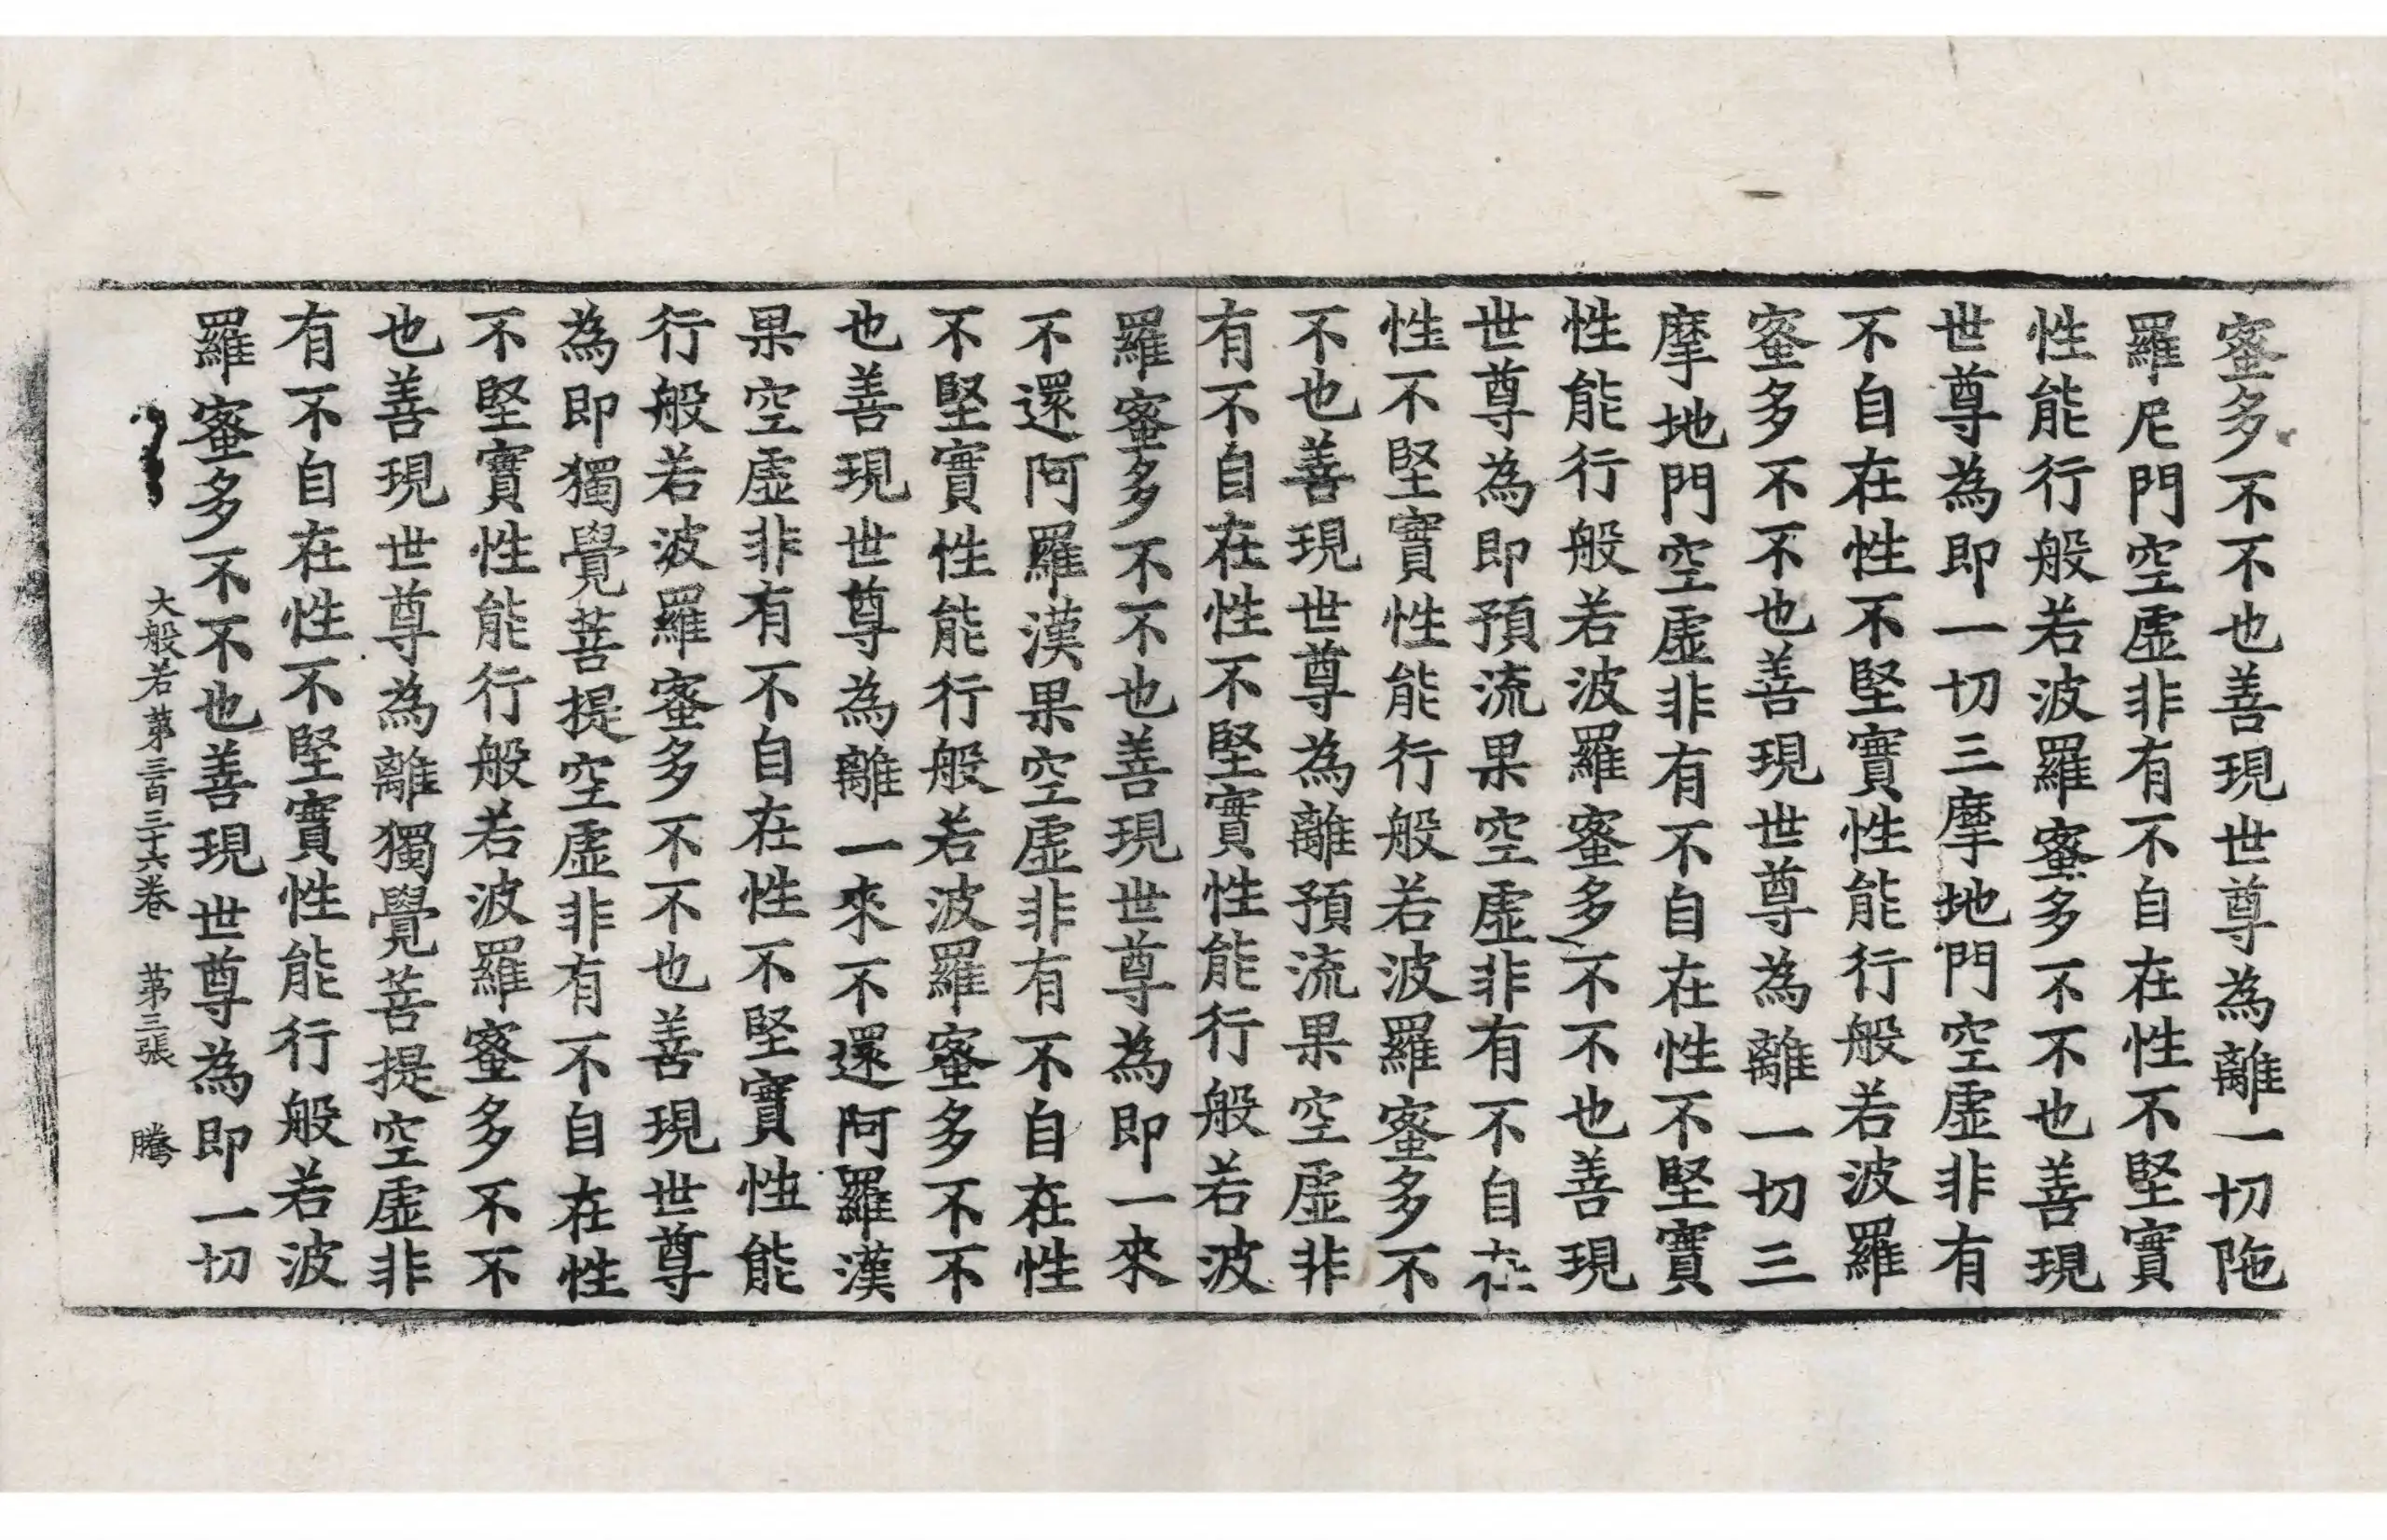 蜜多不不也善現世尊為離一切陁
羅尼門空虛非有不自在性不堅實
性能行般若波羅蜜多不不也善現
世尊為即一切三摩地門空虛非有
不自在性不堅實性能行般若波羅
蜜多不不也善現世尊為離一切三
摩地門空虛非有不自在性不堅實
性能行般若波羅蜜多不不也善現
世尊為即預流果空虛非有不自在
性不堅實性能行般若波羅蜜多不
不也善現世尊為離預流果空虛非
有不自在性不堅實性能行般若波
羅蜜多不不也善現世尊為即一來
不還阿羅漢果空虛非有不自在性
不堅實性能行般若波羅蜜多不不
也善現世尊為離一來不還阿羅漢
果空虛非有不自在性不堅實性能
行般若波羅蜜多不不也善現世尊
為即獨覺菩提空虛非有不自在性
不堅實性能行般若波羅蜜多不不
也善現世尊為離獨覺菩提空虛非
有不自在性不堅實性能行般若波
羅蜜多不不也善現世尊為即一切
大般若第三百三十六卷 第三張 騰